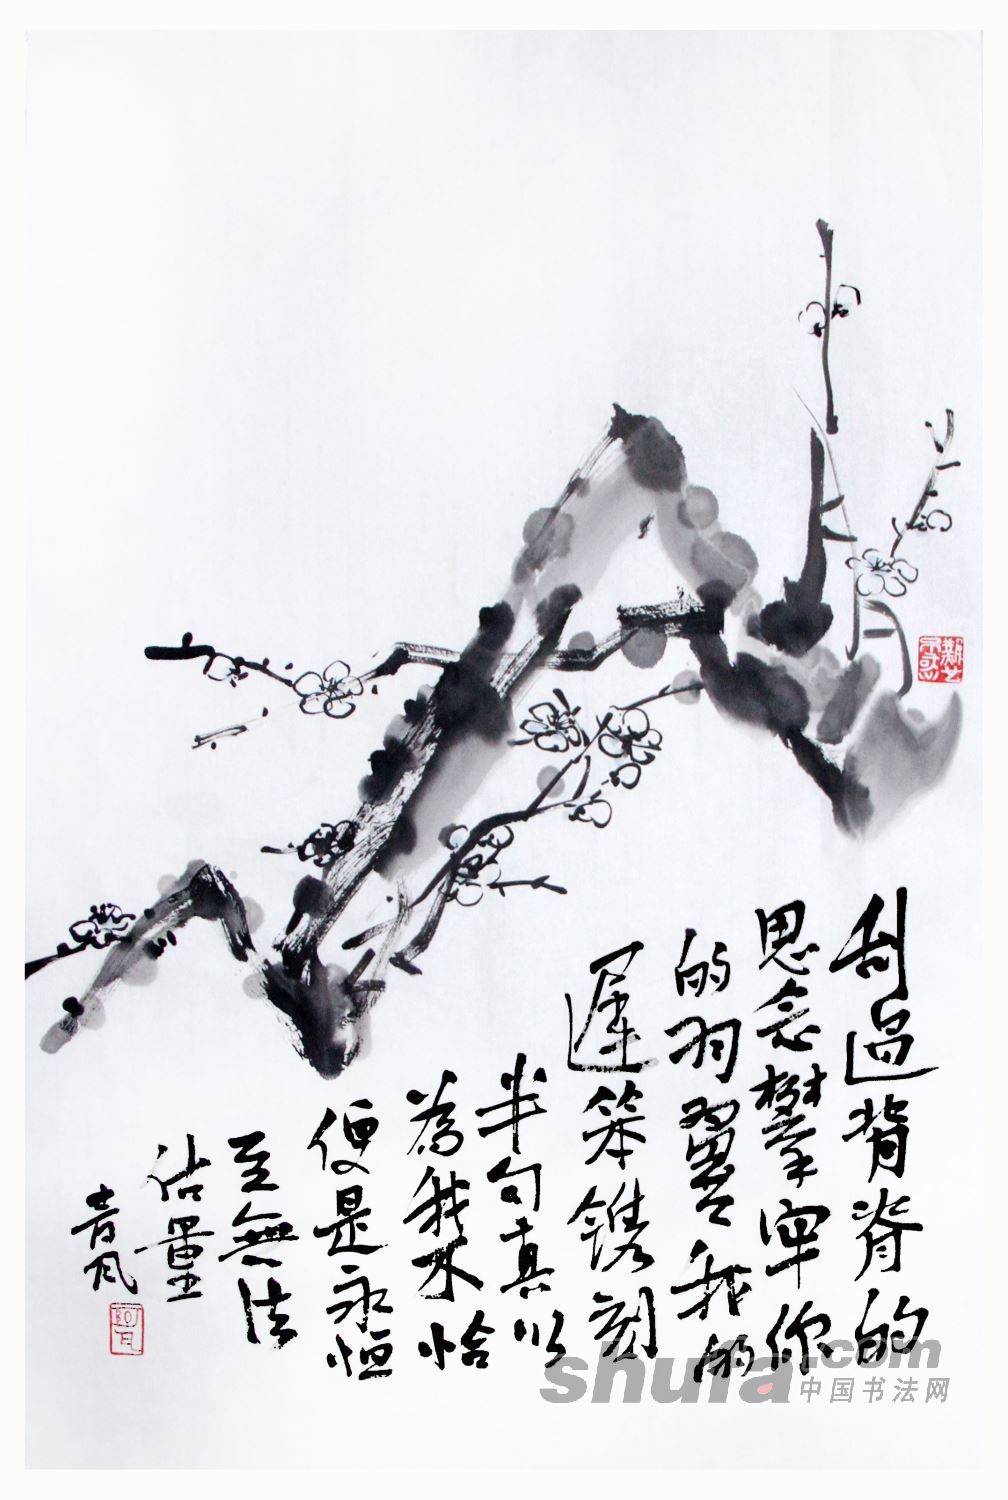 刮過背脊的
思念攀牢你
的羽翼我的
遲笨鐫刻
半句真以
為我不恰
便是永恒
至無法
估量
shufa.com
中国书法网